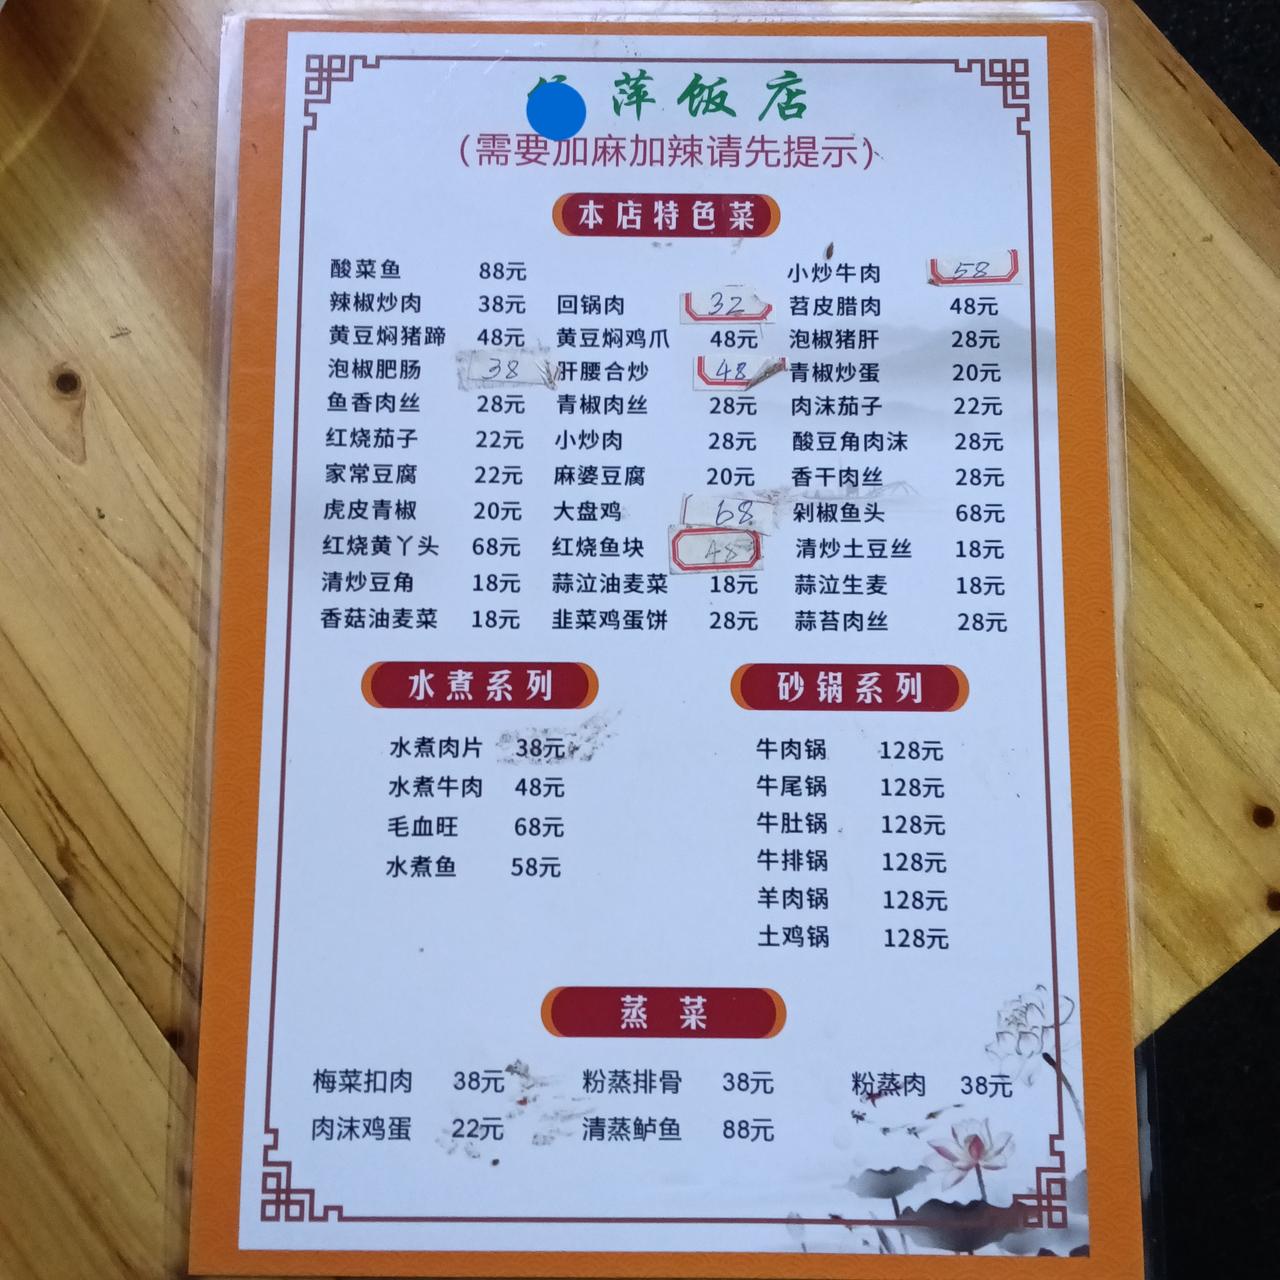 萍饭店
(需要加麻加辣请先提示)
本店特色菜
酸菜鱼 88元 小炒牛肉 58
辣椒炒肉 38元 回锅肉 32 苕皮腊肉 48元
黄豆焖猪蹄 48元 黄豆焖鸡爪 48元 泡椒猪肝 28元
泡椒肥肠 38 肝腰合炒 48 青椒炒蛋 20元
鱼香肉丝 28元 青椒肉丝 28元 肉沫茄子 22元
红烧茄子 22元 小炒肉 28元 酸豆角肉沫 28元
家常豆腐 22元 麻婆豆腐 20元 香干肉丝 28元
虎皮青椒 20元 大盘鸡 68 剁椒鱼头 68元
红烧黄丫头 68元 红烧鱼块 48 清炒土豆丝 18元
清炒豆角 18元 蒜泣油麦菜 18元 蒜泣生麦 18元
香菇油麦菜 18元 韭菜鸡蛋饼 28元 蒜苔肉丝 28元
水煮系列
水煮肉片 38元
水煮牛肉 48元
毛血旺 68元
水煮鱼 58元
砂锅系列
牛肉锅 128元
牛尾锅 128元
牛肚锅 128元
牛排锅 128元
羊肉锅 128元
土鸡锅 128元
蒸菜
梅菜扣肉 38元 粉蒸排骨 38元 粉蒸肉 38元
肉沫鸡蛋 22元 清蒸鲈鱼 88元